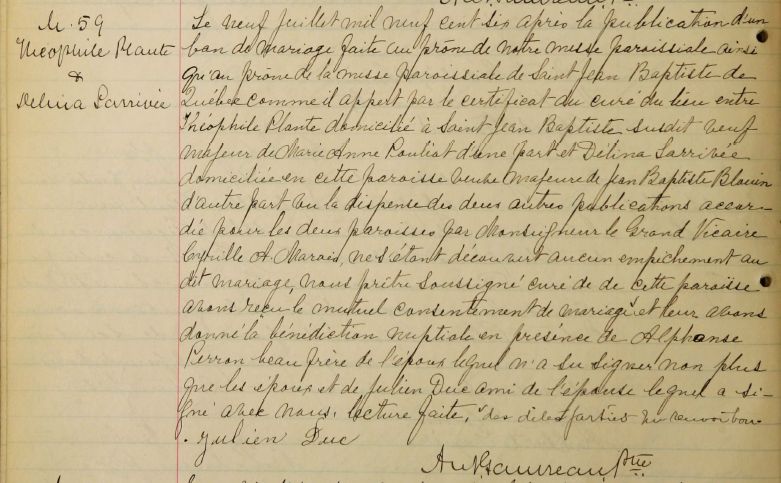 M. 59
Théophile Plante
&
Délina Larrivée
Le neuf Juillet mil neuf cent six après la publication d'un
ban de mariage faite au prône de notre messe paroissiale ainsi
qu'au prône de la messe paroissiale de Saint Jean Baptiste de
Québec comme il appert par le certificat du curé du lieu entre
Théophile Plante domicilié à Saint Jean Baptiste susdit veuf
majeur de Marie Anne Pouliot d'une part et Délina Larrivée
domiciliée en cette paroisse veuve majeure de Jean Baptiste Blouin
d'autre part vu la dispense des deux autres publications accor-
dée pour les deux paroisses par Monseigneur le Grand Vicaire
Cyrille A Marois, ne s'étant découvert aucun empêchement au
dit mariage, nous prêtre soussigné curé de de cette paroisse
avons reçu le mutuel consentement de mariage et leur avons
donné la bénédiction nuptiale en présence de Alphonse
Perron beau frère de l'époux lequel n'a su signer non plus
que les époux et de Julien Duc ami de l'épouse lequel a si-
gné avec nous. lecture faite, des dites parties un renvoi bon.
Julien Duc
Ptre